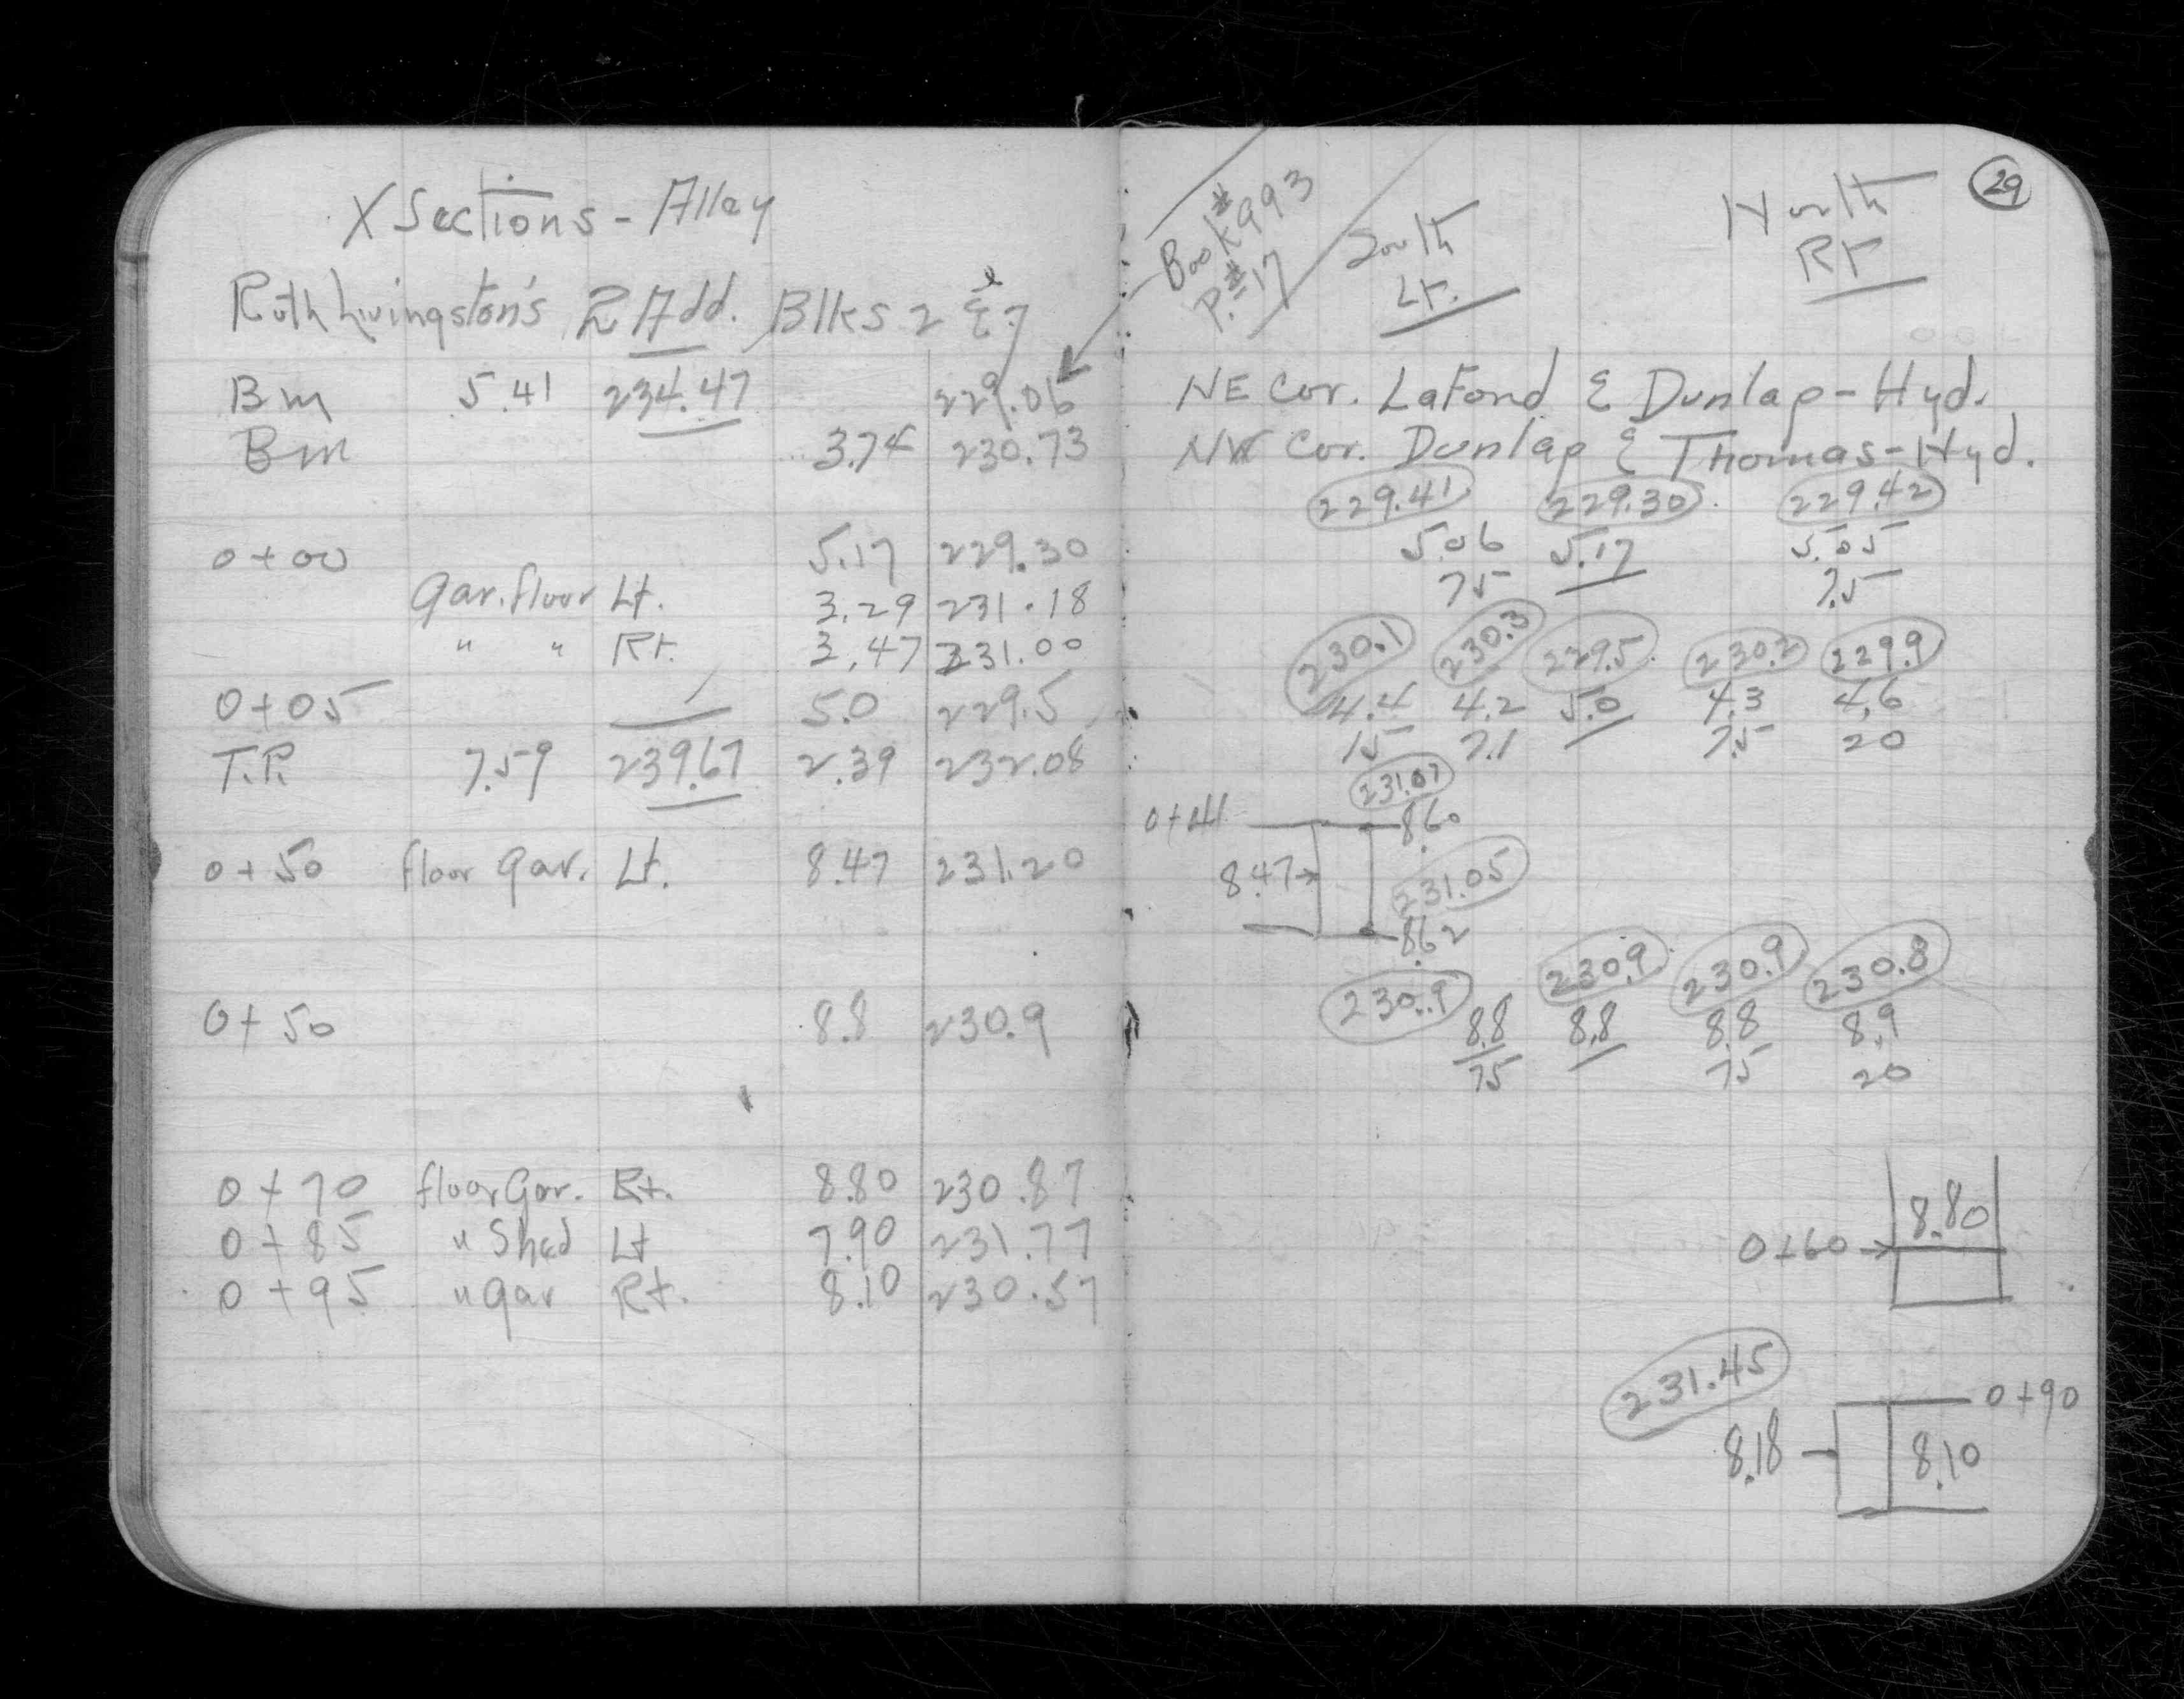 X Sections - Alley
Ruth Livingston's R Add. Blks 2 & 7
Bm 5.41 234.47 229.06
Bm 3.74 230.73
0+00 5.17 229.30
Gar. floor Lt. 3.29 231.18
" " Rt. 3.47 231.00
0+05 5.0 229.5
T.P. 7.59 239.67 2.39 232.08
0+50 floor Gar. Lt. 8.47 231.20
0+50 8.8 230.9
0+70 floor Gar. Rt. 8.80 230.87
0+85 " Shed Lt 7.90 231.77
0+95 " Gar Rt. 8.10 230.57
29
Book #993
P. #17
South
Lt.
North
Rt
NE Cor. LaFond & Dunlap - Hyd.
NW Cor. Dunlap & Thomas - Hyd.
229.41 229.30 229.42
5.06 5.17 5.05
7.5 7.5
230.1 230.3 229.5 230.2 229.9
4.4 4.2 5.0 4.3 4.6
15 7.1 7.5 20
231.07
0+41 8.60
8.47 231.05
8.62
230.9 230.9 230.9 230.8
8.8 8.8 8.8 8.9
7.5 7.5 20
8.80
0+60
231.45
0+90
8.18 8.10